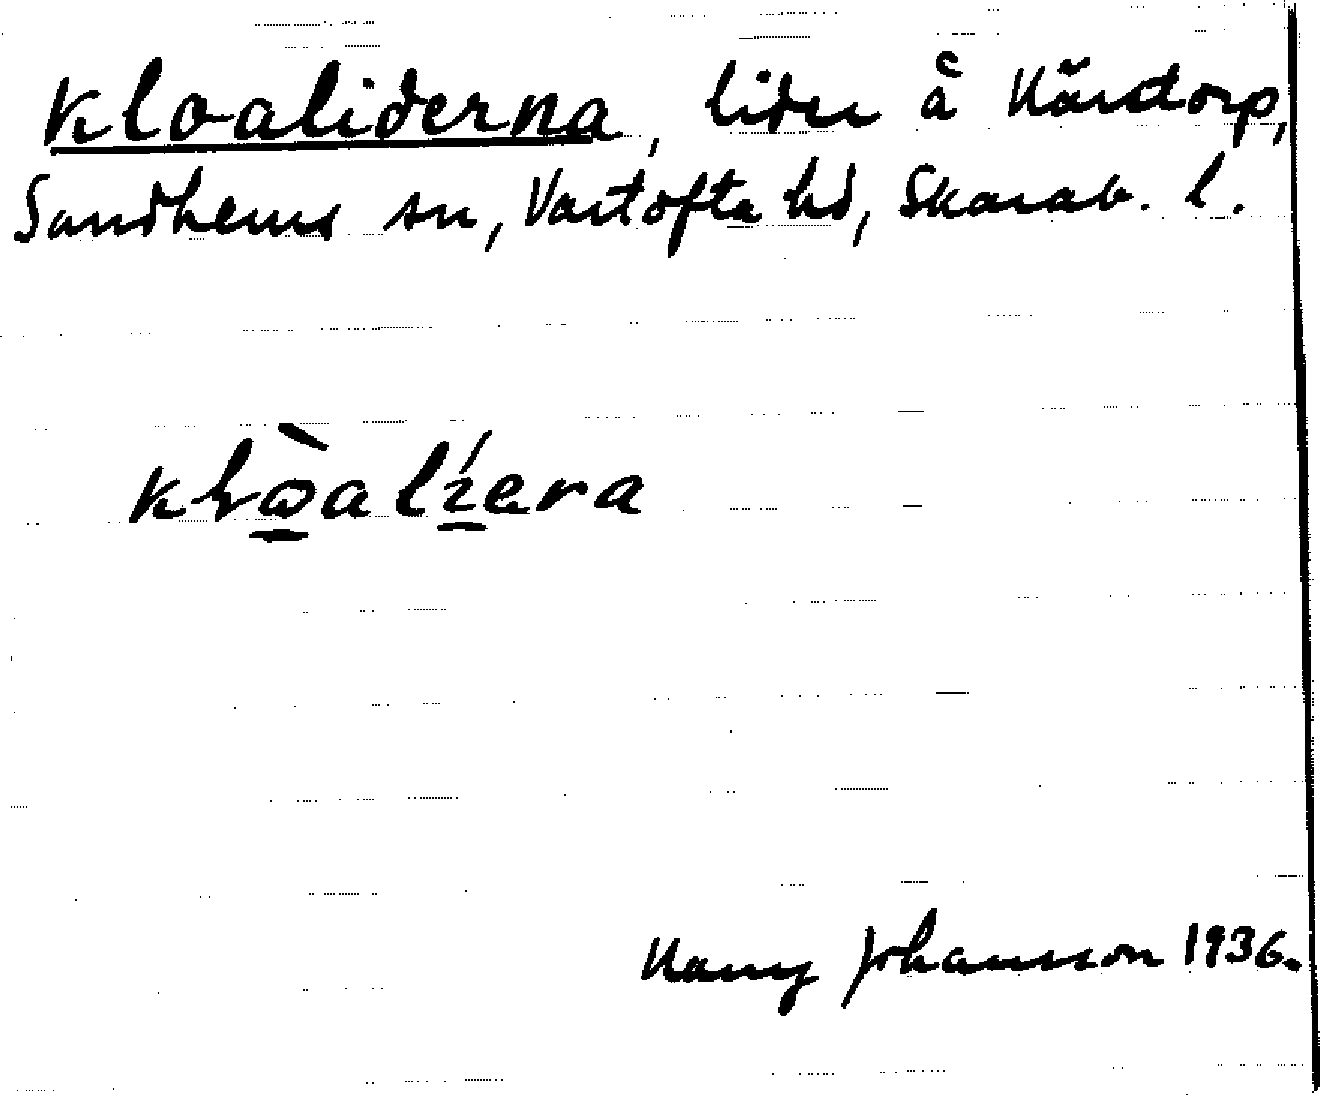 Kloaliderna, lider å Kärdorp,
Sandhems sn, Vartofta hd, Skarab. l.
klòalíera
Johansson 1936.